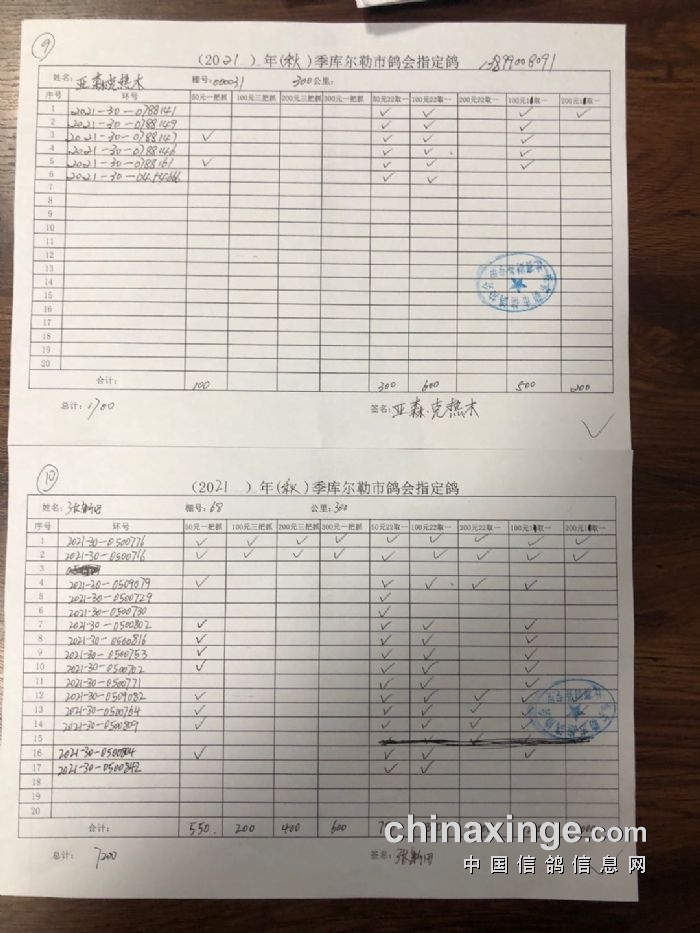 9
(2021)年(秋)季库尔勒市鸽会指定鸽 13899008091
姓名: 亚森克热木 棚号: 00031 300公里:
序号 环号 50元一把抓 100元三把抓 200元三把抓 300元一把抓 50元22取一 100元22取一 200元22取一 100元1取一 200元1取一
1 2021-30-0788141 ✓ ✓ ✓ ✓
2 2021-30-0788149 ✓ ✓ ✓
3 2021-30-0788147 ✓ ✓ ✓ ✓
4 2021-30-0788146 ✓ ✓ ✓
5 2021-30-0788161 ✓ ✓ ✓ ✓
6 ✓ ✓
7
8
9
10
11
12
13
14
15
16
17
18
19
20
合计: 100 300 600 500 200
总计: 1700 签名: 亚森.克热木
10
(2021)年(秋)季库尔勒市鸽会指定鸽
姓名: 张新田 棚号: 68 公里: 300
序号 环号 50元一把抓 100元三把抓 200元三把抓 300元一把抓 50元22取一 100元22取一 200元22取一 100元1取一 200元1取一
1 2021-30-0500776 ✓ ✓ ✓ ✓ ✓ ✓ ✓ ✓ ✓
2 2021-30-0500766 ✓ ✓ ✓ ✓ ✓ ✓ ✓ ✓ ✓
3
4 2021-30-0509079 ✓ ✓ ✓ ✓ ✓
5 2021-30-0500729 ✓
6 2021-30-0500730 ✓
7 2021-30-0500802 ✓ ✓ ✓ ✓
8 2021-30-0500816 ✓ ✓ ✓ ✓
9 2021-30-0500753 ✓ ✓ ✓ ✓
10 2021-30-0500702 ✓ ✓ ✓ ✓
11 2021-30-0500771 ✓ ✓ ✓
12 2021-30-0509082 ✓ ✓ ✓ ✓ ✓
13 2021-30-0500764 ✓ ✓ ✓ ✓ ✓
14 2021-30-0500809 ✓ ✓ ✓ ✓ ✓
15
16 2021-30-0500804 ✓ ✓ ✓ ✓
17 2021-30-0500842 ✓ ✓
18
19
20
合计: 550 200 400 600
总计: 7200 签名: 张新田
chinaxinge.com
中国信鸽信息网